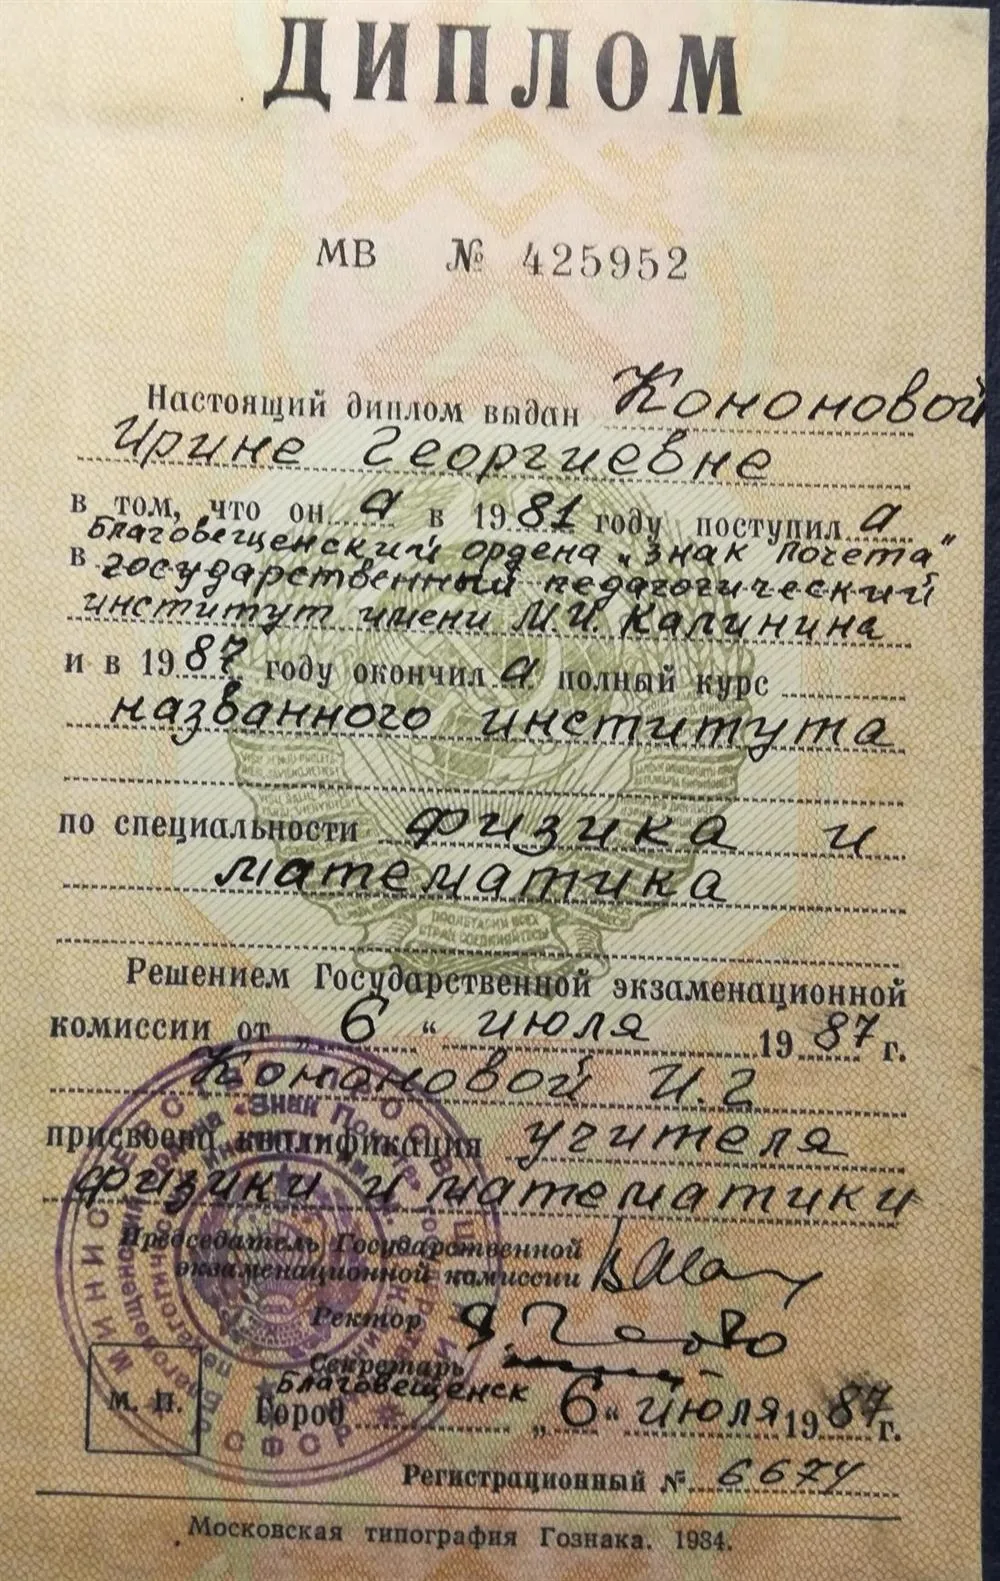 ДИПЛОМ
МВ № 425952
Настоящий диплом выдан Кононовой
Ирине Георгиевне
в том, что он а в 1981 году поступил а
Благовещенский ордена „Знак Почета"
в государственный педагогический
институт имени М.И. Калинина
и в 1987 году окончил а полный курс
названного института
по специальности физика и
математика
Решением Государственной экзаменационной
комиссии от „ 6 " июля 1987 г.
Кононовой И.Г
присвоена квалификация учителя
физики и математики
Председатель Государственной
экзаменационной комиссии
Ректор
Секретарь
Благовещенск
М. П. Город „ 6 " июля 1987 г.
Регистрационный № 6674
Московская типография Гознака. 1984.